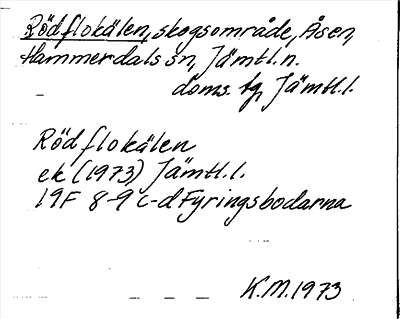 Rödflokälen, skogsområde, Åsen,
Hammerdals sn, Jämtl. n.
doms. tg, Jämtl. l.
Rödflokälen
ek (1973) Jämtl. l.
19F 8-9 c-d Fyringsbodarna
K.M. 1973